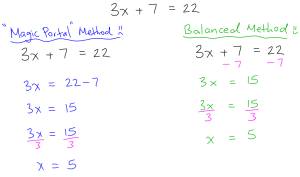 3x + 7 = 22
"Magic Portal" Method !!
3x + 7 = 22
3x = 22 - 7
3x = 15
3x/3 = 15/3
x = 5
Balanced Method !!
3x + 7 = 22
- 7 - 7
3x = 15
3x/3 = 15/3
x = 5